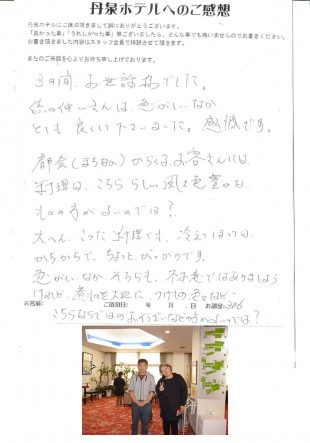 丹泉ホテルへのご感想
丹泉ホテルにご宿泊頂きまして誠にありがとうございます。
「良かった事」「うれしかった事」等ございましたら、どんな事でも構いませんのでお書きください。
お書き頂きました内容はスタッフ全員で拝読させて頂きます。
またのご来館を心よりお待ち申し上げております。
3日間、お世話様でした。
仲いさんは、急がしいなか
とても良くして下さいました。感激です。
都会(まち)からくるお客さんには、
料理は、こちららしい風景色豊な
ものの方がよいのでは?
大へん、こった料理でも、冷えてしまっては
かちかちで、ちょっとがっかりです。
急がしいなか、それらも、不本意ではありましょう
けれど、煮物を大地に、つけもの、色々など
こちらならではのおそうざいなどの方がよいのでは?
お名前: ご宿泊日: 年 月 日 お部屋: 306